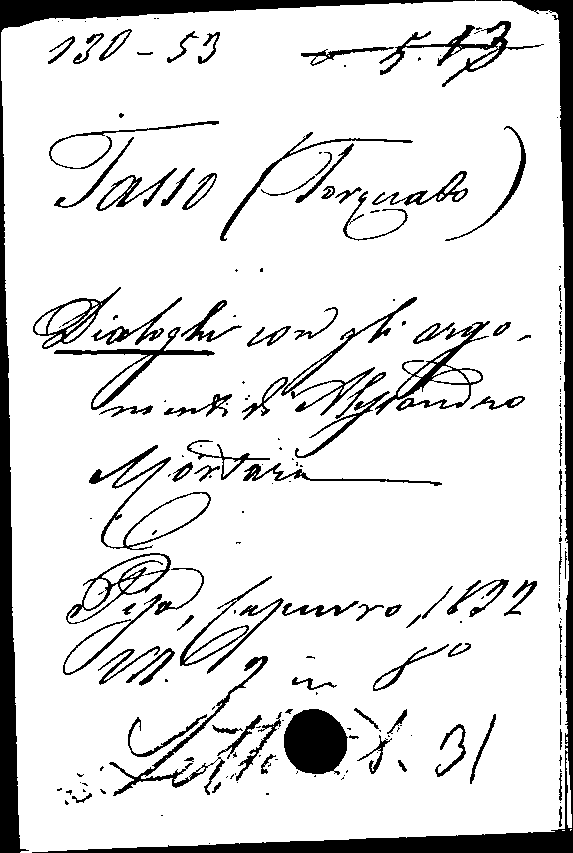 130-53 5.13
Tasso (Torquato)
Dialoghi con gli argo-
menti di Alessandro
Mortara
Pisa, Capurro, 1832
in 8º
Lett. 31